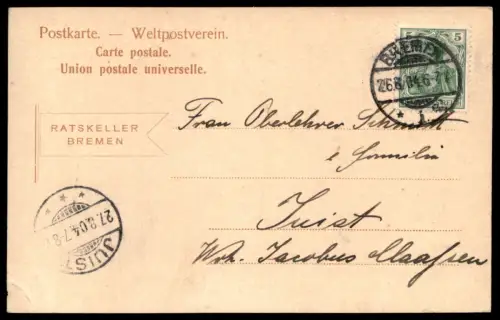 Postkarte. — Weltpostverein.
Carte postale.
Union postale universelle.
RATSKELLER
BREMEN
5 5
BREMEN
26.8.04.6-7
* 1 a
Frau Oberlehrer Schmidt
e Familie
Juist
Wh. Jacobus Claassen
JUIST
27.8.04.7-8